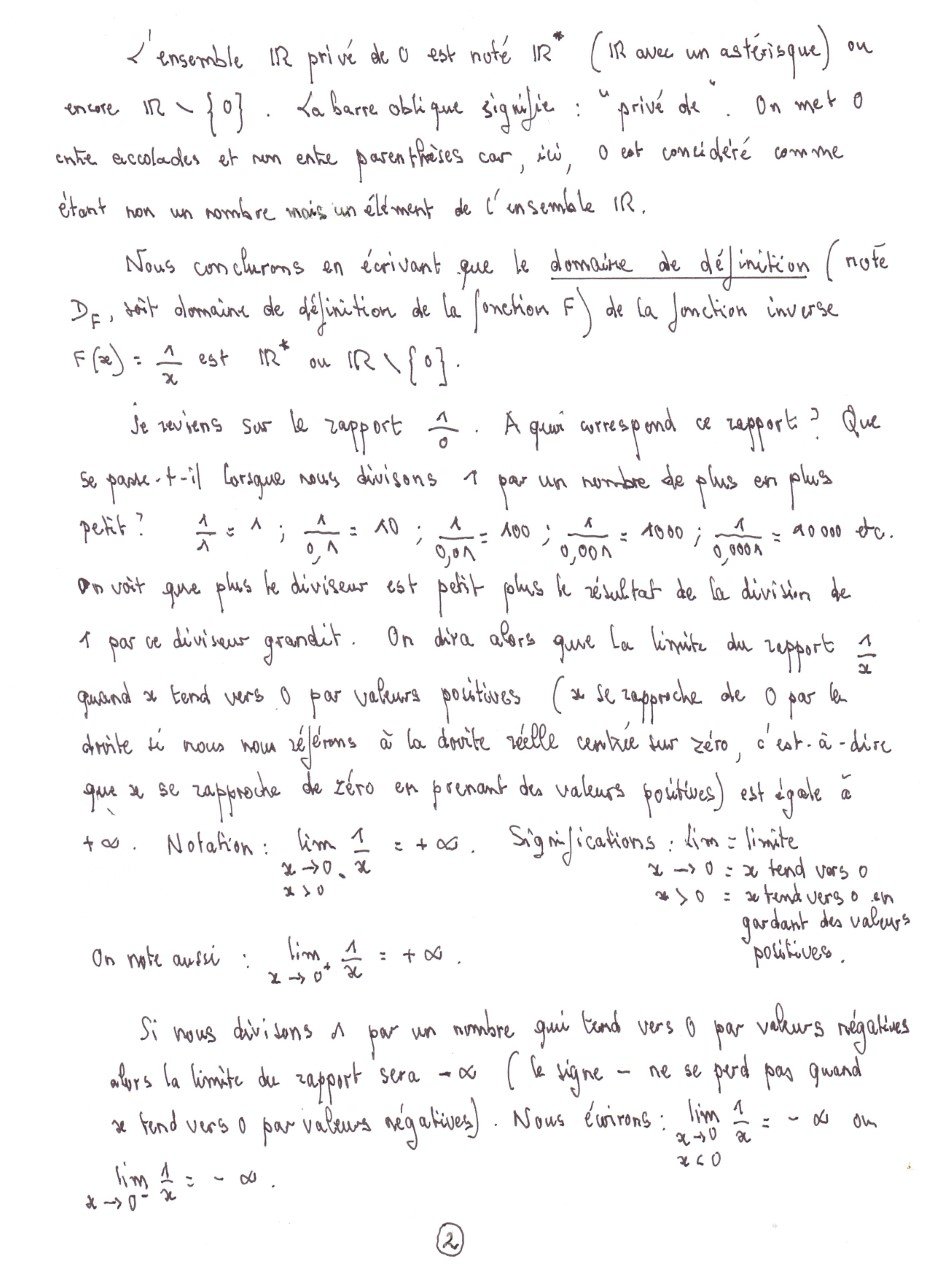 L'ensemble ℝ privé de 0 est noté ℝ* (ℝ avec un astérisque) ou
encore ℝ \ {0}. La barre oblique signifie : "privé de". On met 0
entre accolades et non entre parenthèses car, ici, 0 est concidéré comme
étant non un nombre mais un élément de l'ensemble ℝ.
Nous conclurons en écrivant que le domaine de définition (noté
D_F, soit domaine de définition de la fonction F) de la fonction inverse
F(x) = 1/x est ℝ* ou ℝ \ {0}.
Je reviens sur le rapport 1/0. A quoi correspond ce rapport ? Que
se passe-t-il lorsque nous divisons 1 par un nombre de plus en plus
petit ? 1/1 = 1 ; 1/0,1 = 10 ; 1/0,01 = 100 ; 1/0,001 = 1000 ; 1/0,0001 = 10 000 etc.
On voit que plus le diviseur est petit plus le résultat de la division de
1 par ce diviseur grandit. On dira alors que la limite du rapport 1/x
quand x tend vers 0 par valeurs positives (x se rapproche de 0 par la
droite si nous nous référons à la droite réelle centrée sur zéro, c'est-à-dire
que x se rapproche de zéro en prenant des valeurs positives) est égale à
+∞. Notation : lim 1/x = +∞. Significations : lim = limite
x → 0 x → 0 = x tend vers 0
x > 0 x > 0 = x tend vers 0 en
gardant des valeurs
positives.
On note aussi : lim 1/x = +∞.
x → 0⁺
Si nous divisons 1 par un nombre qui tend vers 0 par valeurs négatives
alors la limite du rapport sera -∞ (le signe - ne se perd pas quand
x tend vers 0 par valeurs négatives). Nous écrirons : lim 1/x = -∞ ou
x → 0
x < 0
lim 1/x = -∞.
x → 0⁻
2